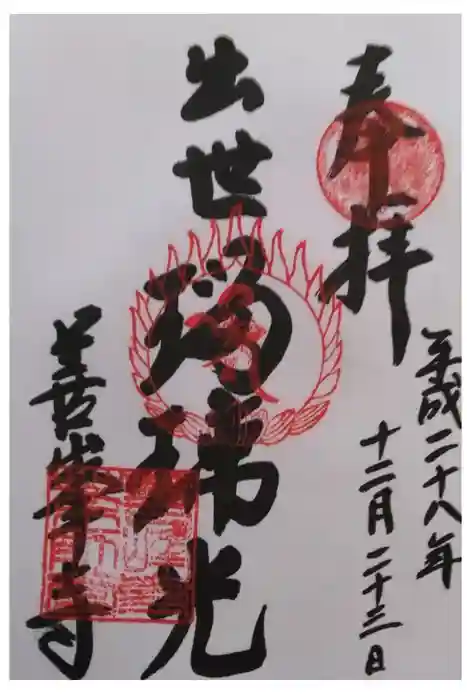 奉拝
平成二十八年
十二月二十三日
出世瑞光
善峯寺